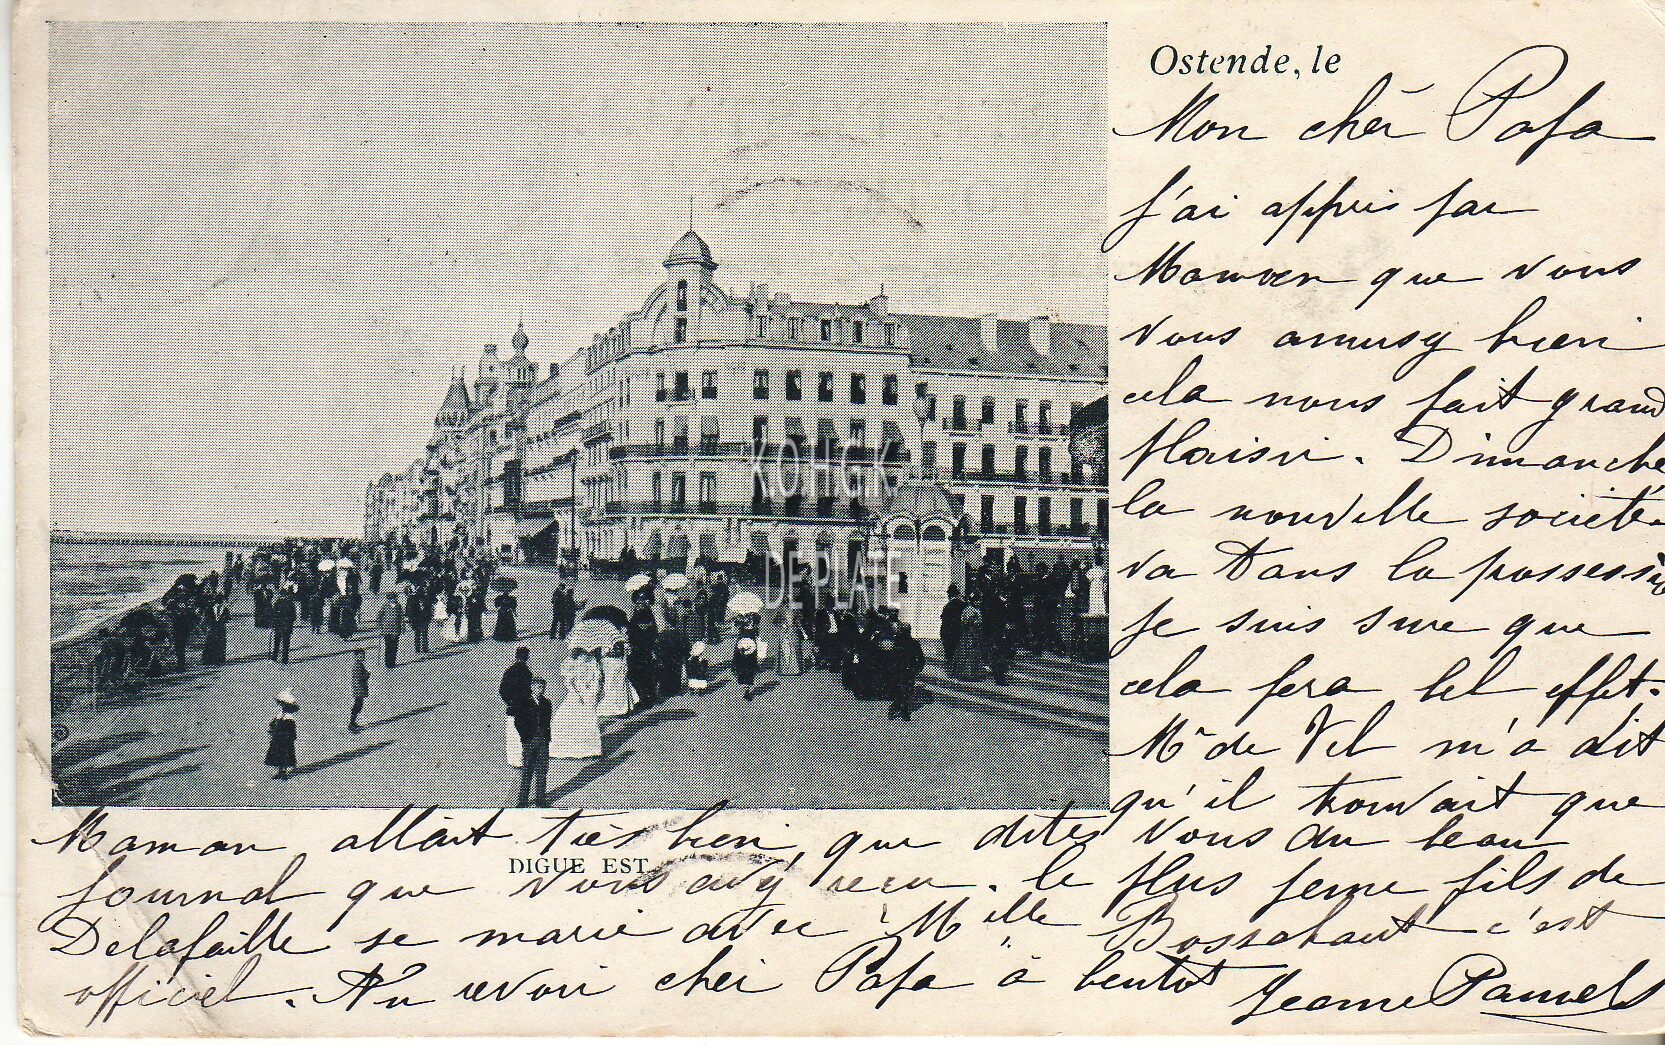 Ostende, le
Mon cher Papa
j'ai appris par
Maman que vous
vous amusez bien
cela nous fait grand
plaisir. Dimanche
la nouvelle société
va dans la possession
je suis sure que
cela fera bel effet.
Mr de Vil m'a dit
qu'il trouvait que
Maman allait très bien, que dites vous du beau
DIGUE EST
journal que vous avez recu. le plus jeune fils de
Delafaille se marie avec Melle Bosschaert c'est
officiel. Au revoir cher Papa à bientot Jeanne Pauwels
K.O.H.G.K.
DE PLATE